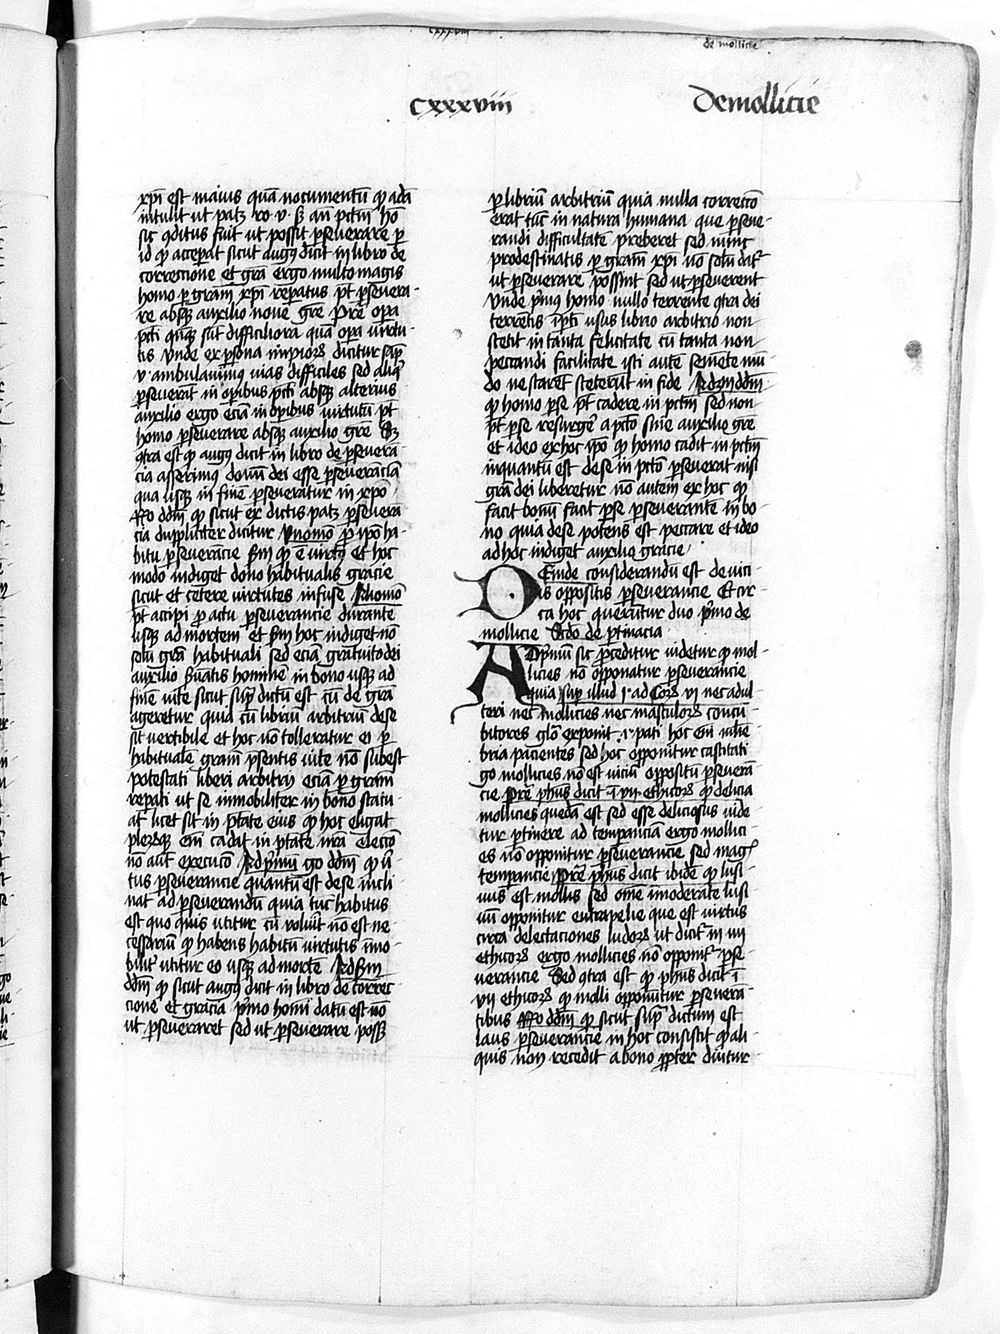 cxxxviii
de mollicie
cxxxviii
De mollicie
xpi est maius quā nocumentū qd adā
intulit ut patz ro · v · sz an pctm hō
sic 9ditus fuit ut possit pseuerare p
id qd acceperat sicut augus dicit in libro de
correctione et gra ergo multo magis
homo p gram xpi repatus pt pseuera-
re absqz auxilio noue gre Pretea opa
pcti quāqz sūt difficiliora quā opa virtu-
tis vnde ex psona impiorz dicitur sap
v · ambulauimus vias difficiles sed aliq
pseuerāt in operibus pcti absqz alterius
auxilio ergo eciā in opibus virtutū pt
homo pseuerare absqz auxilio gre Sz
9tra est qd augus dicit in libro de pseuerā
cia asserimus donū dei esse pseueranciā
qua usqz in finē pseueratur in xpo
Rō ddm qd sicut ex dictis patz pseuerā
cia dupliciter dicitur vnomō p ipō ha-
bitu pseuerancie sm qd ē virtus et hoc
modo indiget dono habitualis gracie
sicut et cetere virtutes infuse Aliomō
pt accipi p actu pseuerancie durante
usqz ad mortem et sm hoc indiget nō
solū gra habituali sed eciā gratuito dei
auxilio 9seruātis hominē in bono usqz ad
finē vite sicut supra dictū est cū de gra
ageretur quia cū liberū arbitriū de se
sit vertibile et hoc nō tolleratur ei p
habitualē gram psentis vite nō subest
potestati liberi arbitrii eciā p gram
repati ut se immobiliter in bono statu
at licet sit in ptate eius qd hoc eligat
plerūqz em cadit in ptate nra electio
nō aut execucio Ad pmū go ddm qd vir
tus pseuerancie quantū est de se incli
nat ad pseuerandū quia tm habitus
est quo quis vtitur cū voluit nō est ne
cessariū qd habens habitū virtutis imo
bilit vtitur eo usqz ad mortē Ad sm
ddm qd sicut augus dicit in libro de correc
cione et gracia pmo homī datū est nō
ut pseueraret sed ut pseuerare posset
p liberū arbitriū quia nulla correctio
erat tūc in natura humana que pseue-
randi difficultatē preberet sed nunc
predestinatis p gram xpi nō solū dat
ut pseuerare possint sed ut pseuerent
Vnde pmus homo nullo terrente 9tra dei
terrentis ipti usus libero arbitrio non
stetit in tanta felicitate cū tanta non
peccandi facilitate isti autē seuiente mū
do ne staret steterūt in fide Ad 3m ddm
qd homo p se pt cadere in pctm sed non
pt p se resurge a pcto sine auxilio gre
et ideo ex hoc ipo qd homo cadit in pctm
inquantū est de se in pcto pseuerat nisi
gra dei liberetur nō autem ex hoc qd
facit bonū facit p se pseuerantē in bo-
no quia de se potens est peccare et ideo
ad hoc indiget auxilio gracie
DEinde considerandū est de vici-
is oppositis pseuerancie Et cir
ca hoc queruntur duo pmo de
mollicie Scdo de ptinacia
AD pmū sic proceditur videtur qd mol-
licies nō opponatur pseuerancie
quia sup illud i · ad Corz vi nec adul-
teri nec mollicies nec masculorz concu-
bitores glo exponit · i · pati hoc em mlie-
bria pacientes sed hoc opponitur castitati
go mollicies nō est viciū oppositū pseuerā
cie Prea phus dicit ī vii ethicorz qd delicia
mollicies quedā est sed esse deliciosus vide
tur ptinere ad tempanciā ergo mollici-
es nō opponitur pseuerancie sed magis
tempancie Prea phus dicit ibidē qd lusi
uus est mollis sed omē imoderate lusi
uū opponitur eutrapelie que est virtus
circa delectaciones ludorz ut dicit in iiii
ethicorz ergo mollicies nō opponit pse
uerancie Sed 9tra est qd phus dicit ī
vii ethicorz qd molli opponitur pseuerā-
tibus Rō ddm qd sicut supra dictum est
laus pseuerancie in hoc consistit qd ali-
quis non recedit a bono ppter diutur